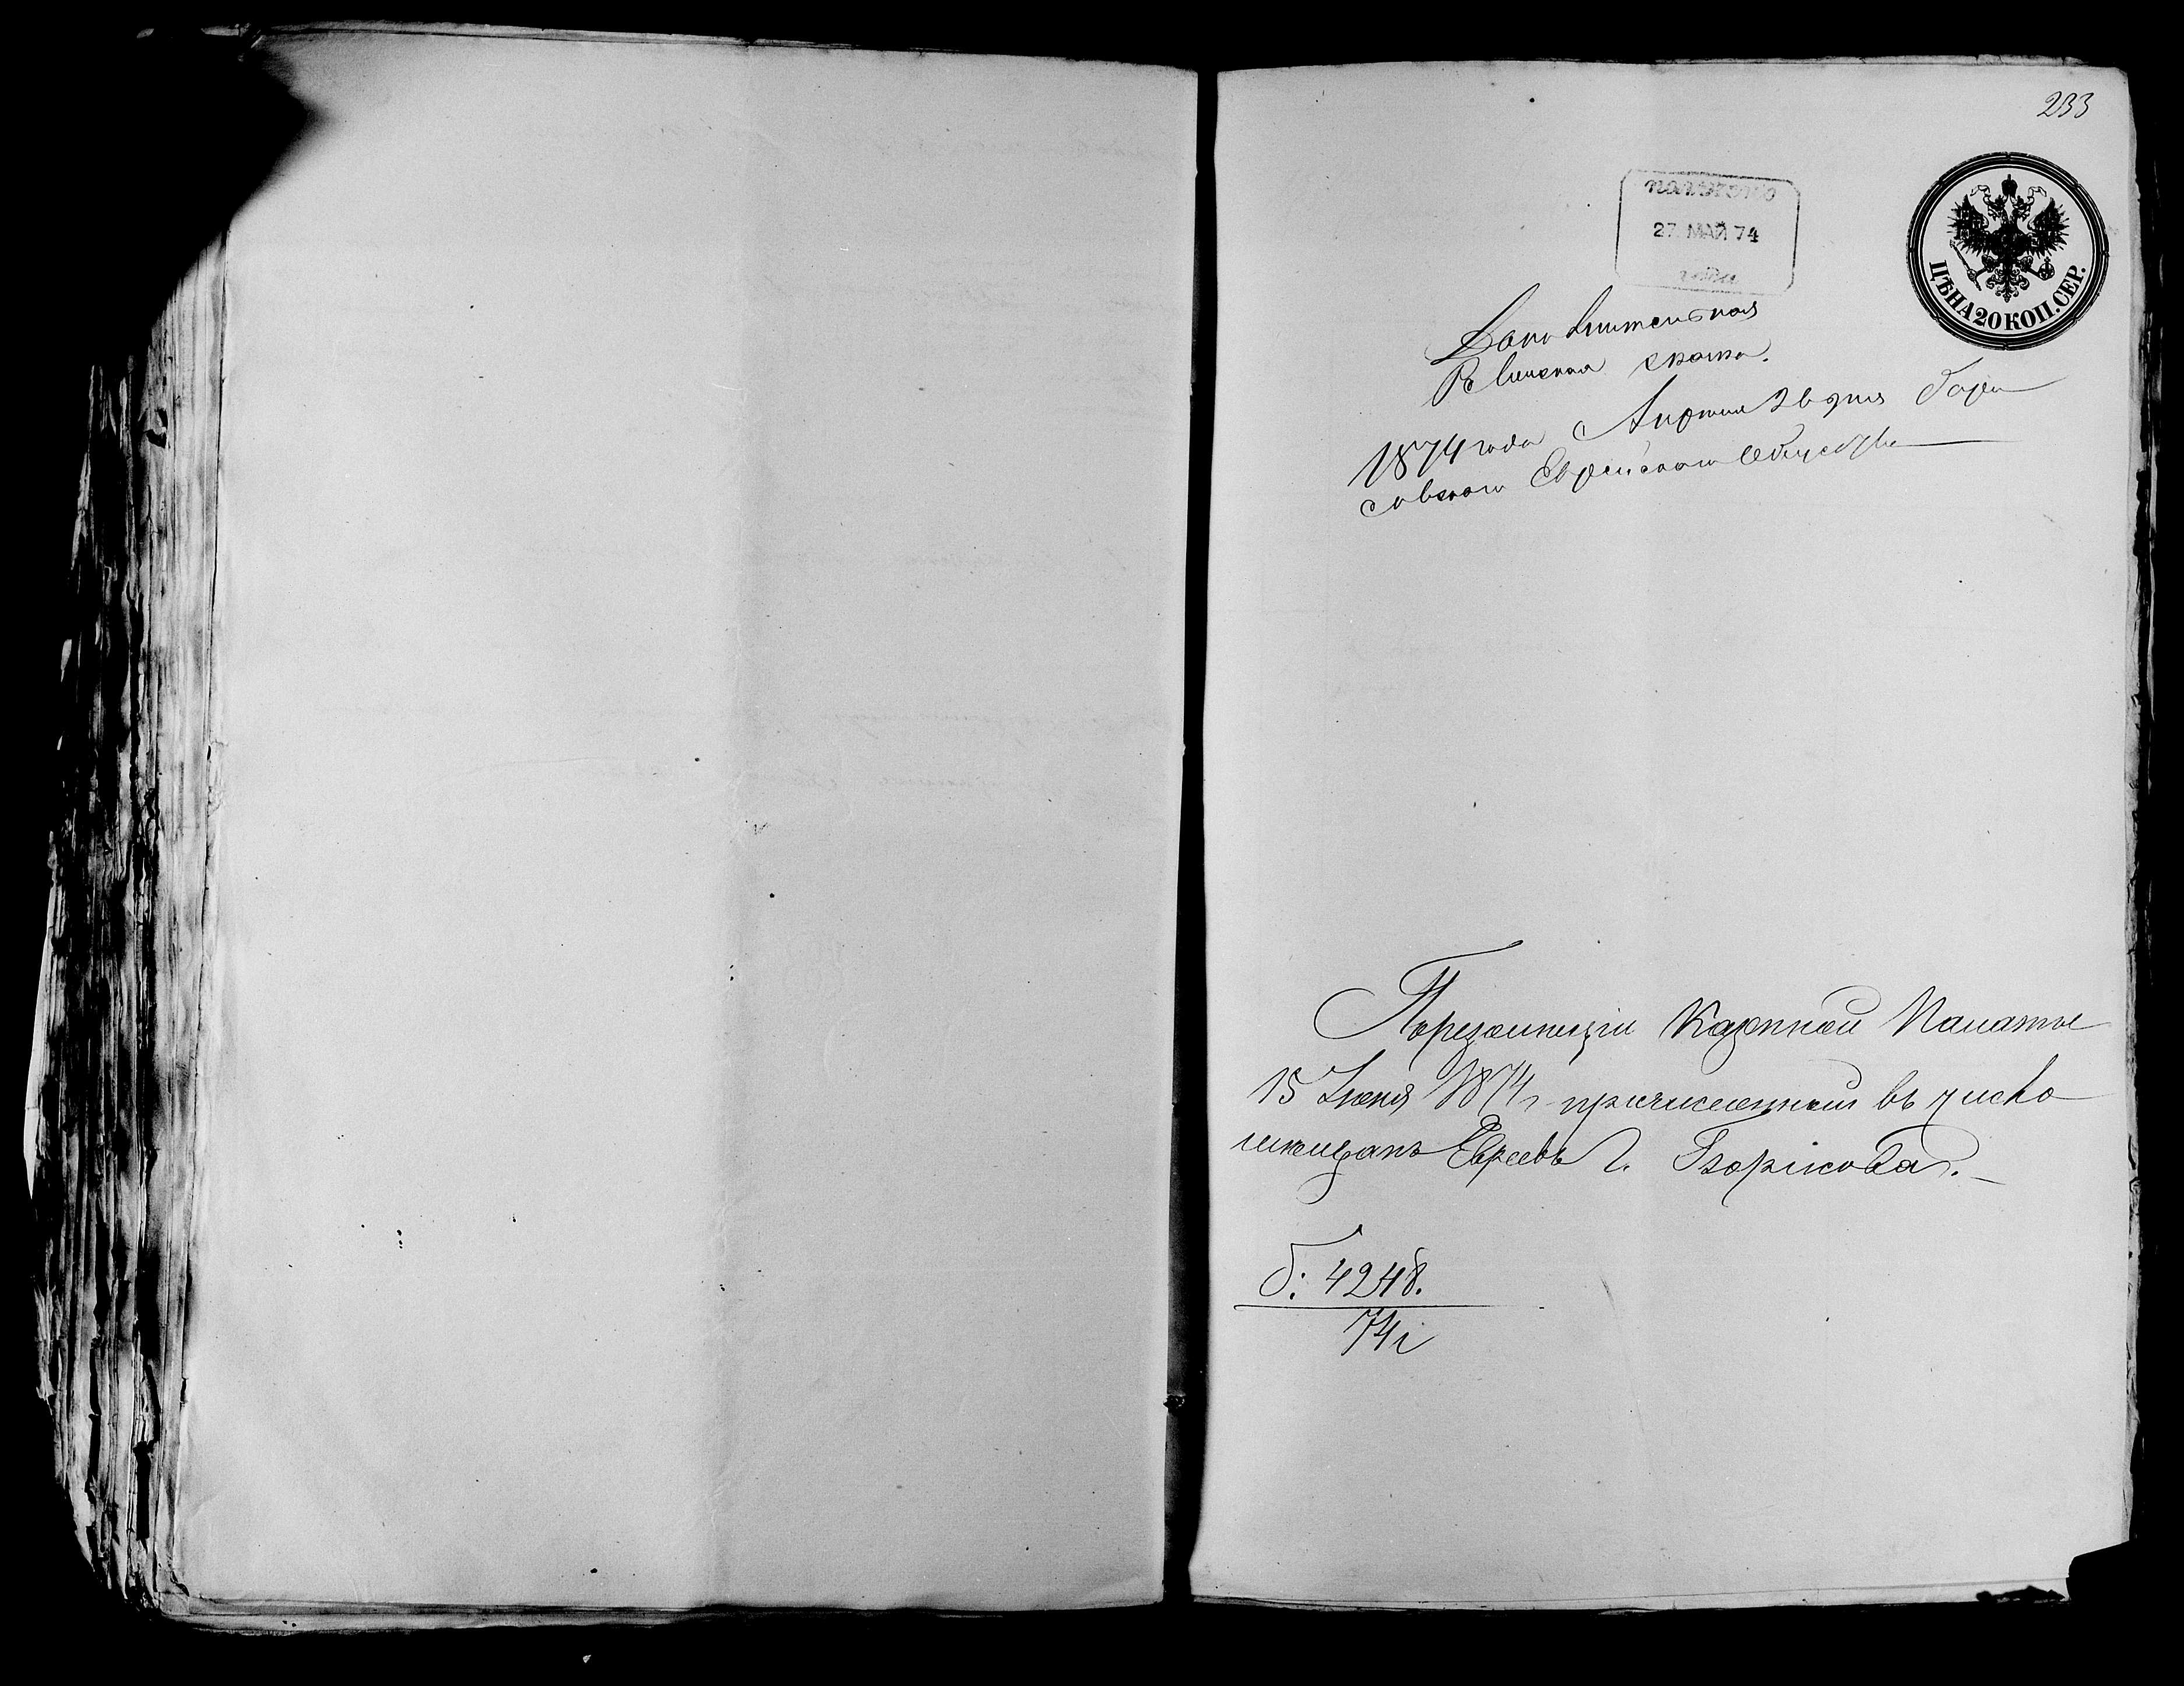 233
получено
27 МАЙ 74
года
ЦѢНА 20 КОП. СЕР.
Дополнительная
Ревизская сказка.
1874 года Апреля 26 дня Бори
совского Еврейского Общества
По резолюціи Казенной Палаты
15 Июня 1874 г. причисленный въ число
мѣщанъ Евреевъ г. Борисова.
б: 4248.
74 г